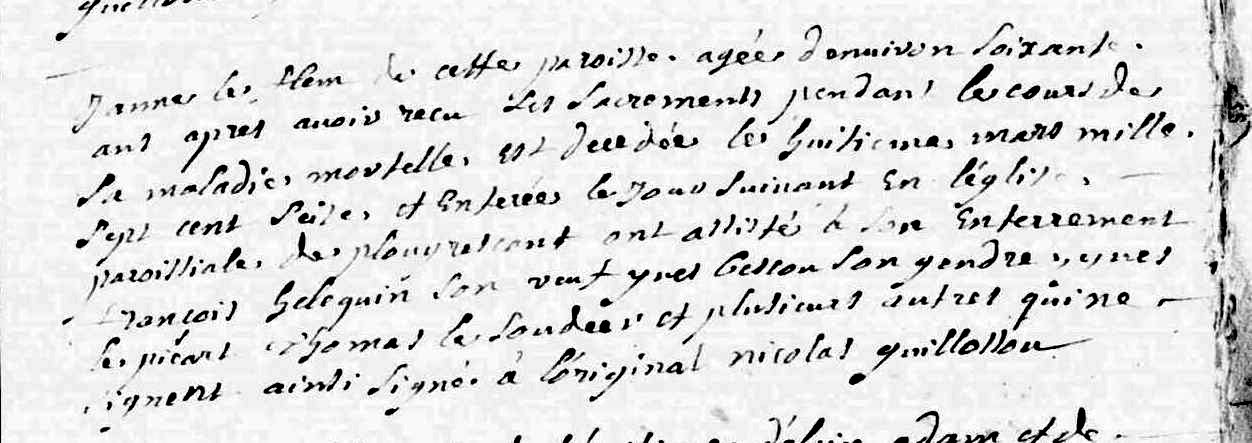 Janne le flem de cette paroisse agée denuiron soixante
ans apres auoir recu ses sacrements pendant le cours de
sa maladie mortelle est decedée le huitieme mars mille
sept cent seize et enterée le jour suiuant en léglise
paroissiale de plougrescant ont assisté à son enterrement
françois helequin son veuf yves Gessou son gendre yves
le picart thomas le soudeer et plusieurs autres qui ne
signent ainsi signé à loriginal nicolas guillossou
adam et de